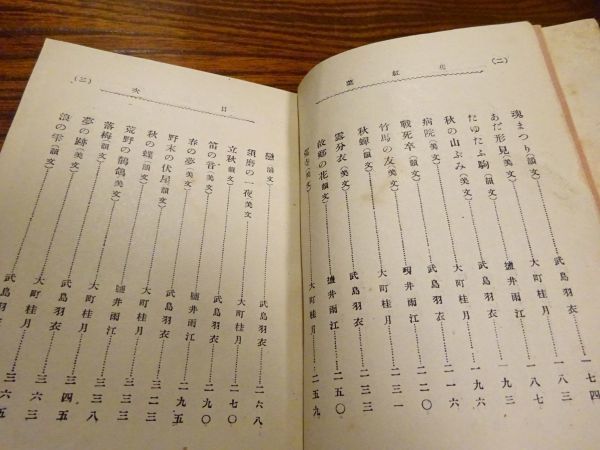 (二)
花紅葉
魂まつり(韻文)………武島羽衣 一七四
あだ形見(美文)………大町桂月 一八三
たゆたふ駒(韻文)………鹽井雨江 一八七
秋の山ぶみ(美文)………武島羽衣 一九三
病院(美文)………大町桂月 一九六
戰死卒(韻文)………武島羽衣 二一六
竹馬の友(美文)………鹽井雨江 二二〇
秋蟬(韻文)………大町桂月 二三一
露分衣(美文)………武島羽衣 二三三
故郷の花(韻文)………鹽井雨江 二五〇
(美文)………大町桂月 二五九
目次
(三)
戀(韻文)………武島羽衣 二六八
須磨の一夜(美文)………大町桂月 二七〇
立秋(韻文)………武島羽衣 二九〇
笛の音(美文)………鹽井雨江 二九五
春の夢(美文)………武島羽衣
野末の伏屋(韻文)………大町桂月 三二三
秋の蝶(韻文)………鹽井雨江
荒野の鶺鴒(美文)………大町桂月 三三八
落梅(韻文)………武島羽衣 三四五
夢の跡(美文)………大町桂月 三六三
浪の雫(韻文)………武島羽衣 三六五